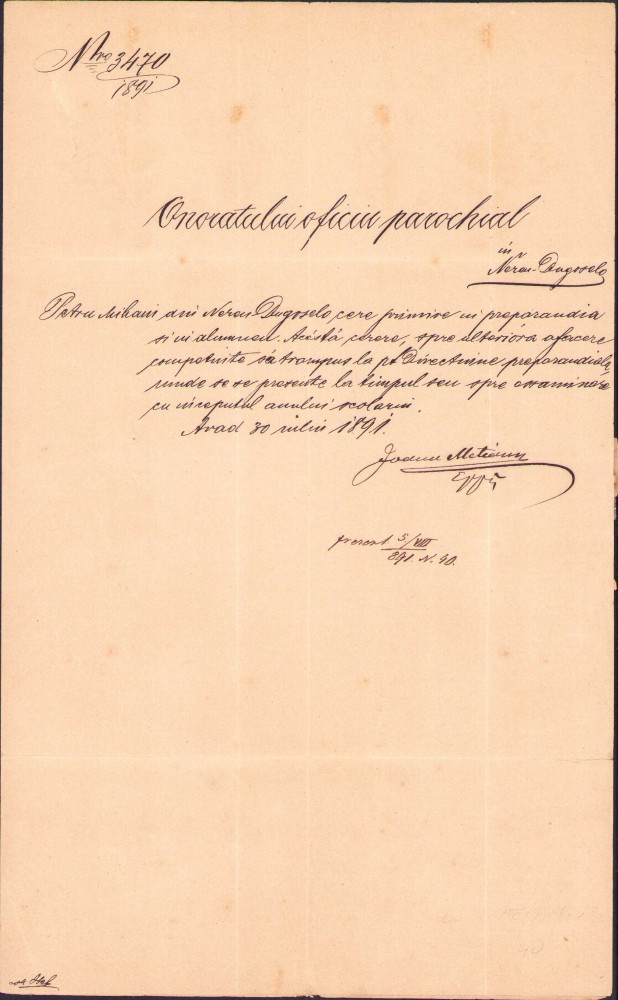 Nro 3470
1891
Onoratului oficiu parochial
in
Nerau-Dugoselo
Petru Mihaiu din Nerau-Dugoselo, cere primire in preparandia
si in alumneu. Acéstă cerere, spre ulterióra afacere
competinte s'a trampus la pt. Directiune preparandiala,
unde se se presente la timpul seu spre essaminare
cu inceputul anului scolariu.
Arad 30 iuliu 1891.
Joanu Metianu
Eppu
present. 5/VIII
891. N. 40.